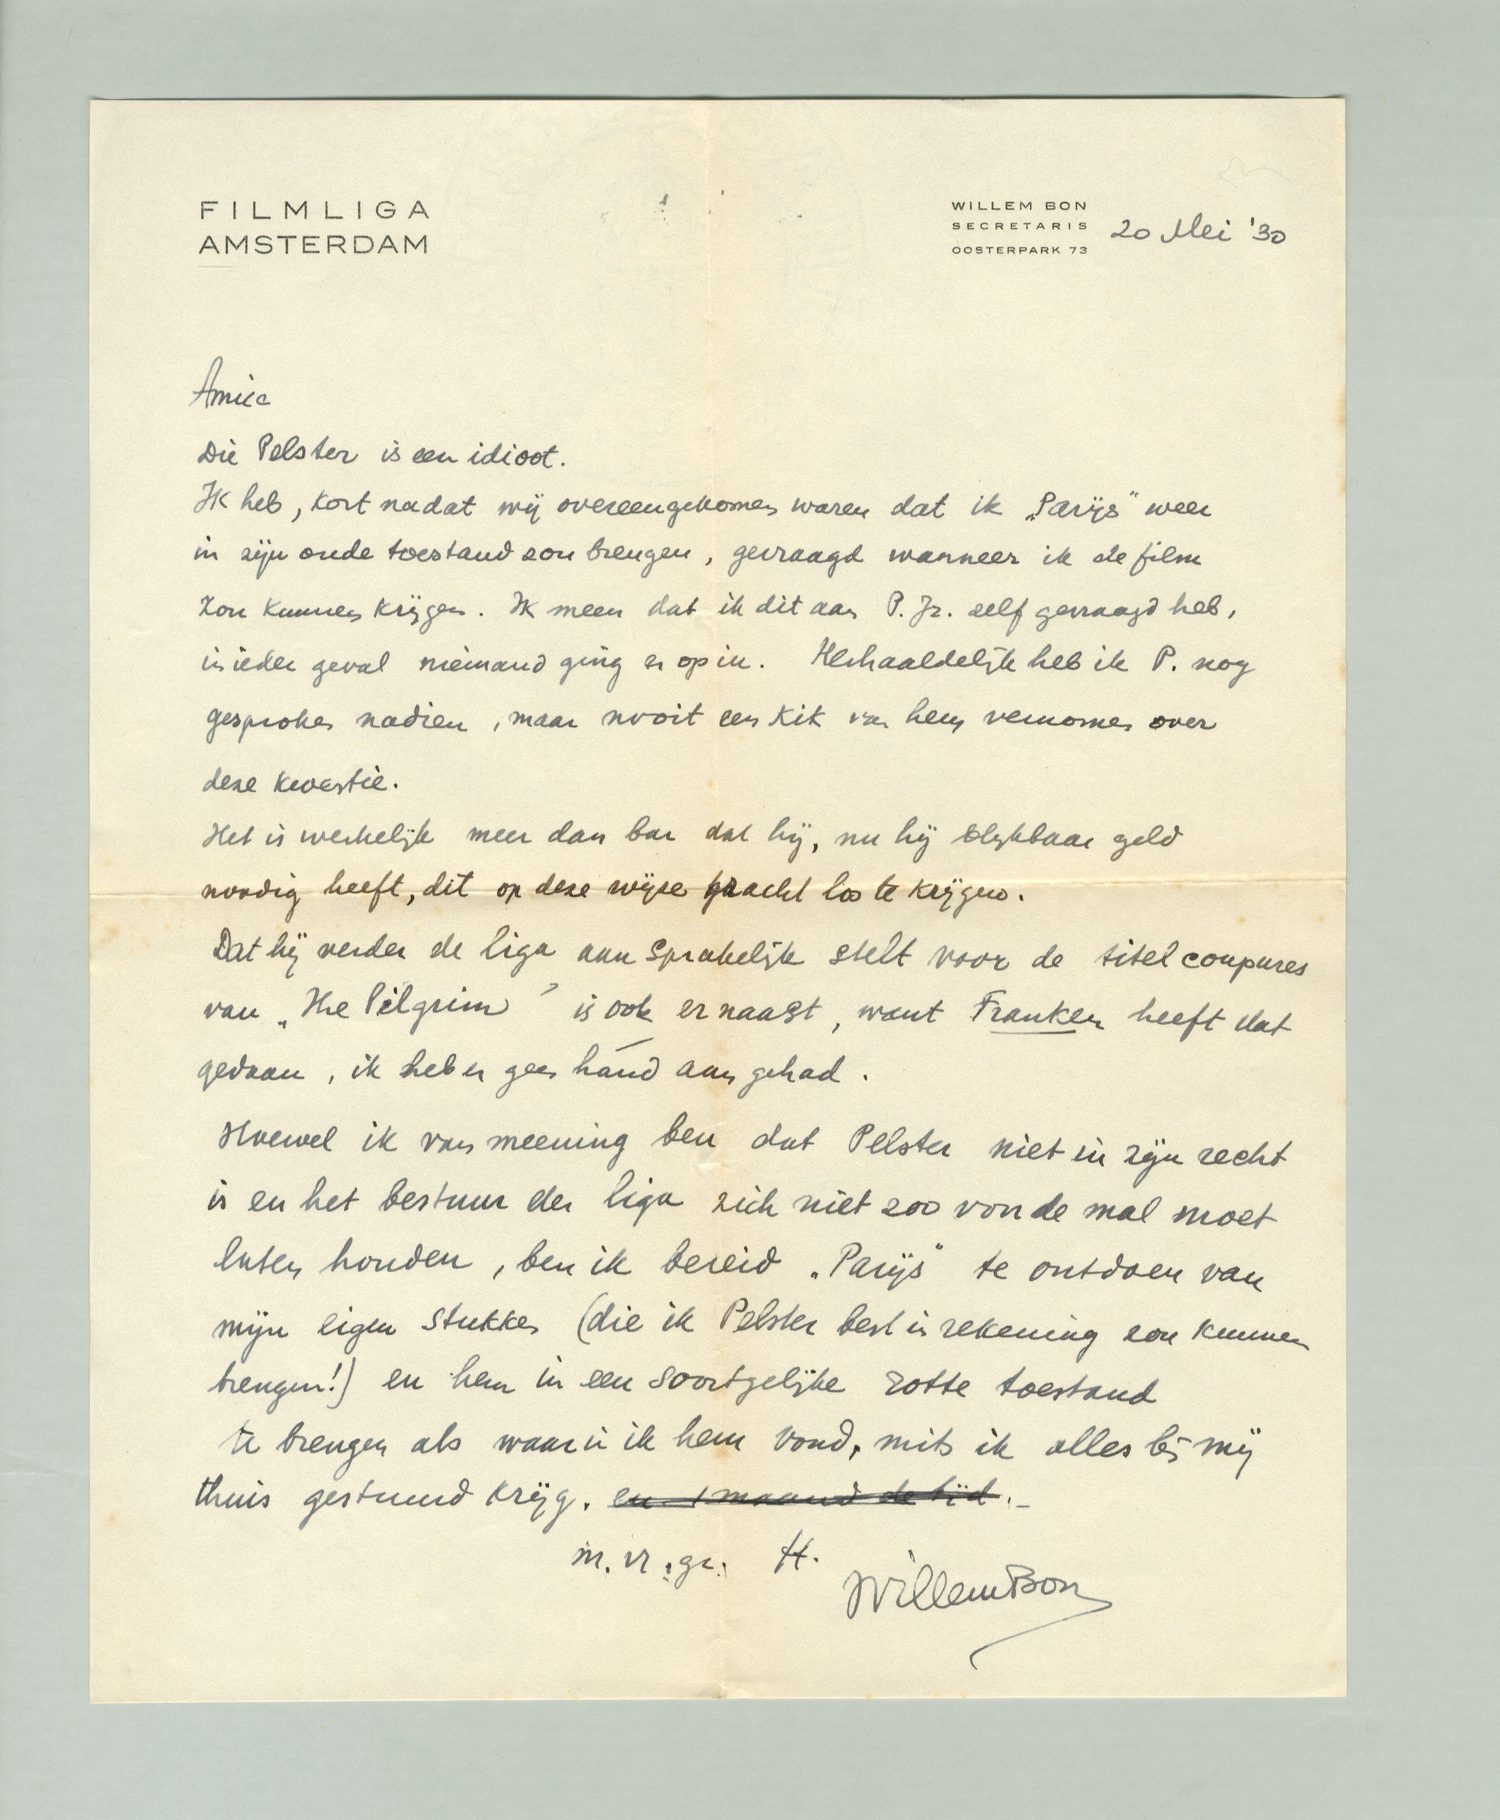 FILMLIGA
AMSTERDAM
WILLEM BON
SECRETARIS
OOSTERPARK 73
20 Mei '30
Amice
Die Pelster is een idioot.
Ik heb, kort nadat wij overeengekomen waren dat ik „Parijs" weer
in zijn oude toestand zou brengen, gevraagd wanneer ik de film
zou kunnen krijgen. Ik meen dat ik dit aan P. Jr. zelf gevraagd heb,
in ieder geval niemand ging er op in. Herhaaldelijk heb ik P. nog
gesproken nadien, maar nooit een kik van hem vernomen over
deze kwestie.
Het is werkelijk meer dan bar dat hij, nu hij blijkbaar geld
noodig heeft, dit op deze wijze tracht los te krijgen.
Dat hij verder de liga aansprakelijk stelt voor de titelcoupures
van „The Pilgrim" is ook er naast, want Franken heeft dat
gedaan, ik heb er geen hand aan gehad.
Hoewel ik van meening ben dat Pelster niet in zijn recht
is en het bestuur der liga zich niet zoo voor de mal moet
laten houden, ben ik bereid „Parijs" te ontdoen van
mijn eigen stukken (die ik Pelster best in rekening zou kunnen
brengen!) en hem in een soortgelijke rotte toestand
te brengen als waarin ik hem vond, mits ik alles bij mij
thuis gestuurd krijg. en 1 maand de tijd.
m. vr. gr. tt.
Willem Bon